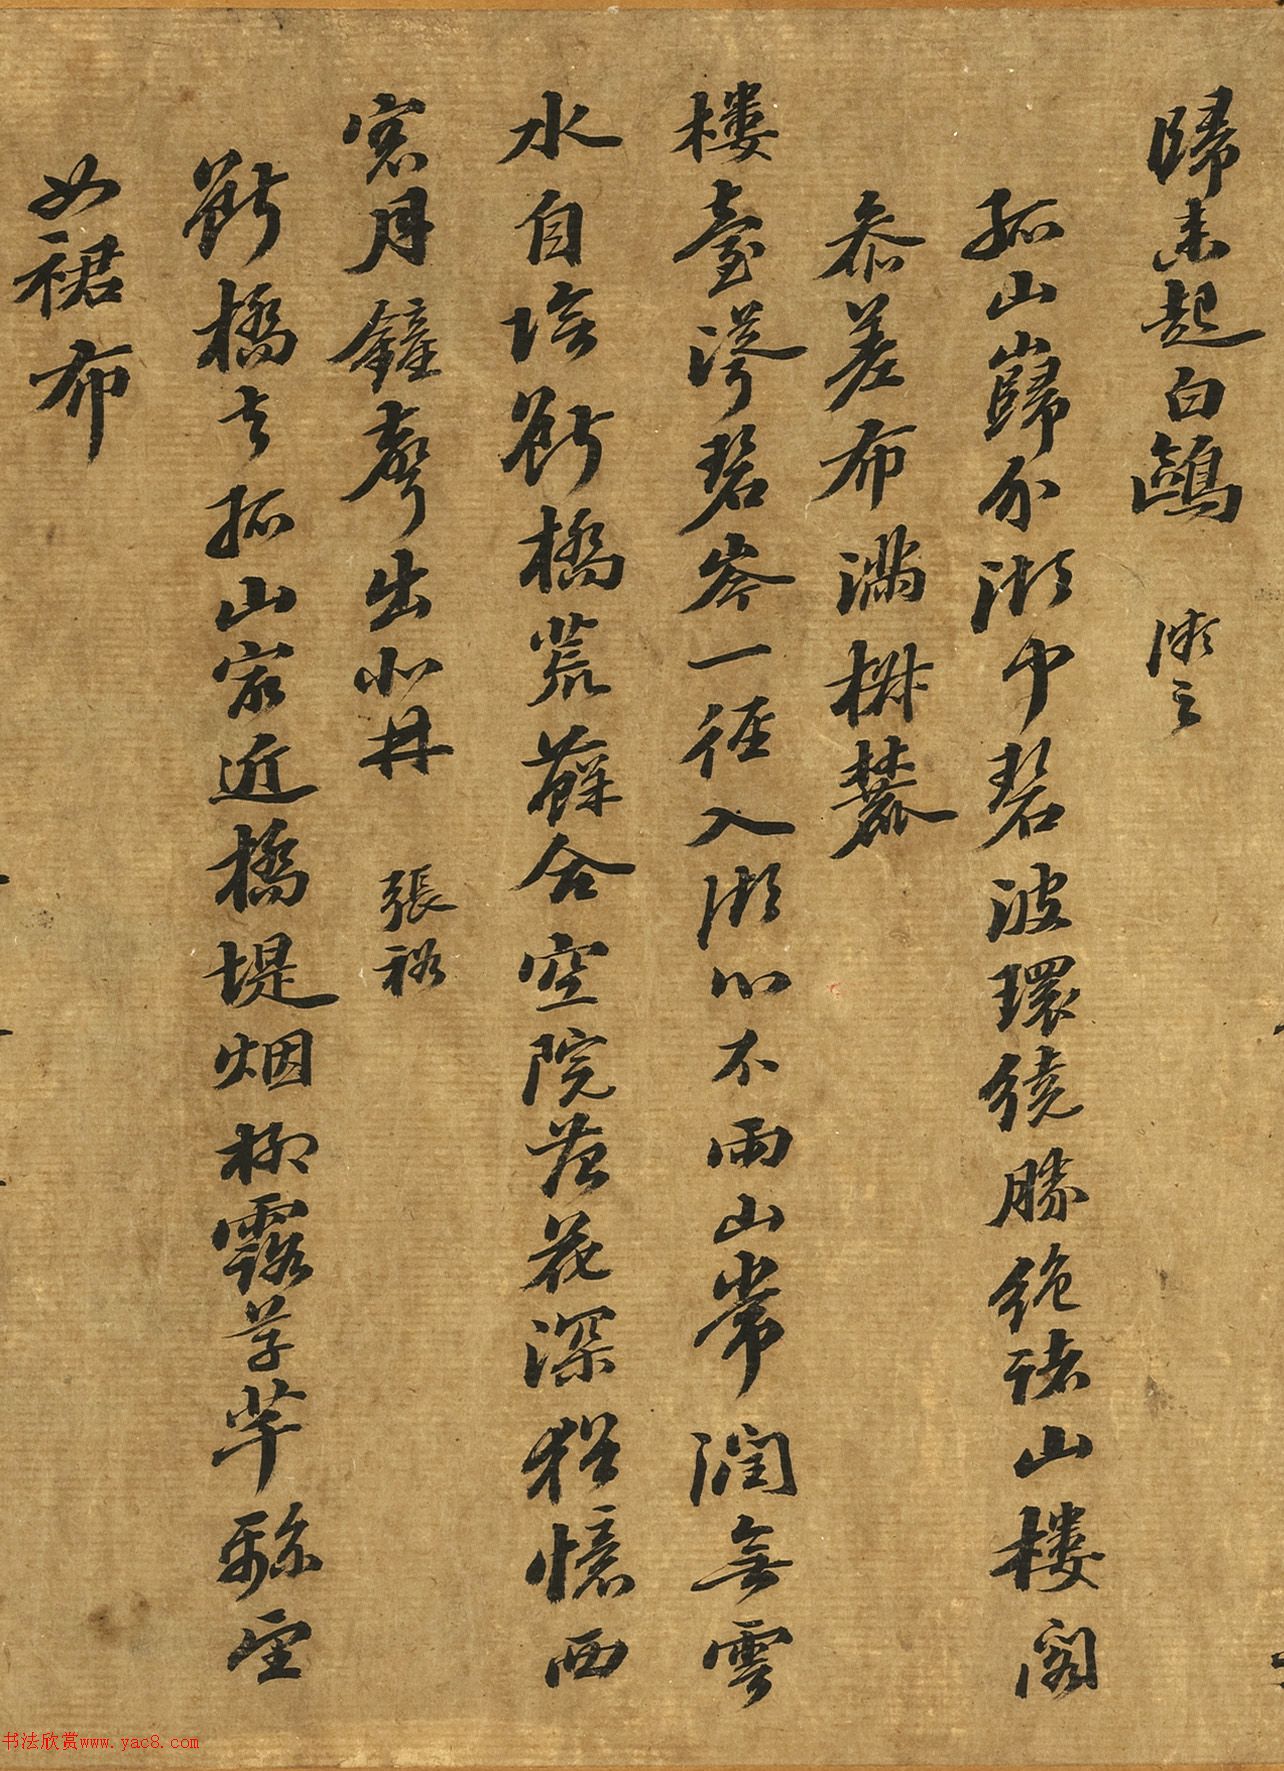 歸未起白鷗
孤山巋介湖中碧波環繞勝絶諸山樓閣
參差布滿椒麓
樓臺碧岑一徑入湖心不雨山常潤無雲
水自陰斷橋荒蘚合空院落花深猶憶西
窗月鐘聲出北林 張裕
斷橋去孤山冣近橋堤烟柳露草芊緜望
如裙布
书法欣赏www.yac8.com